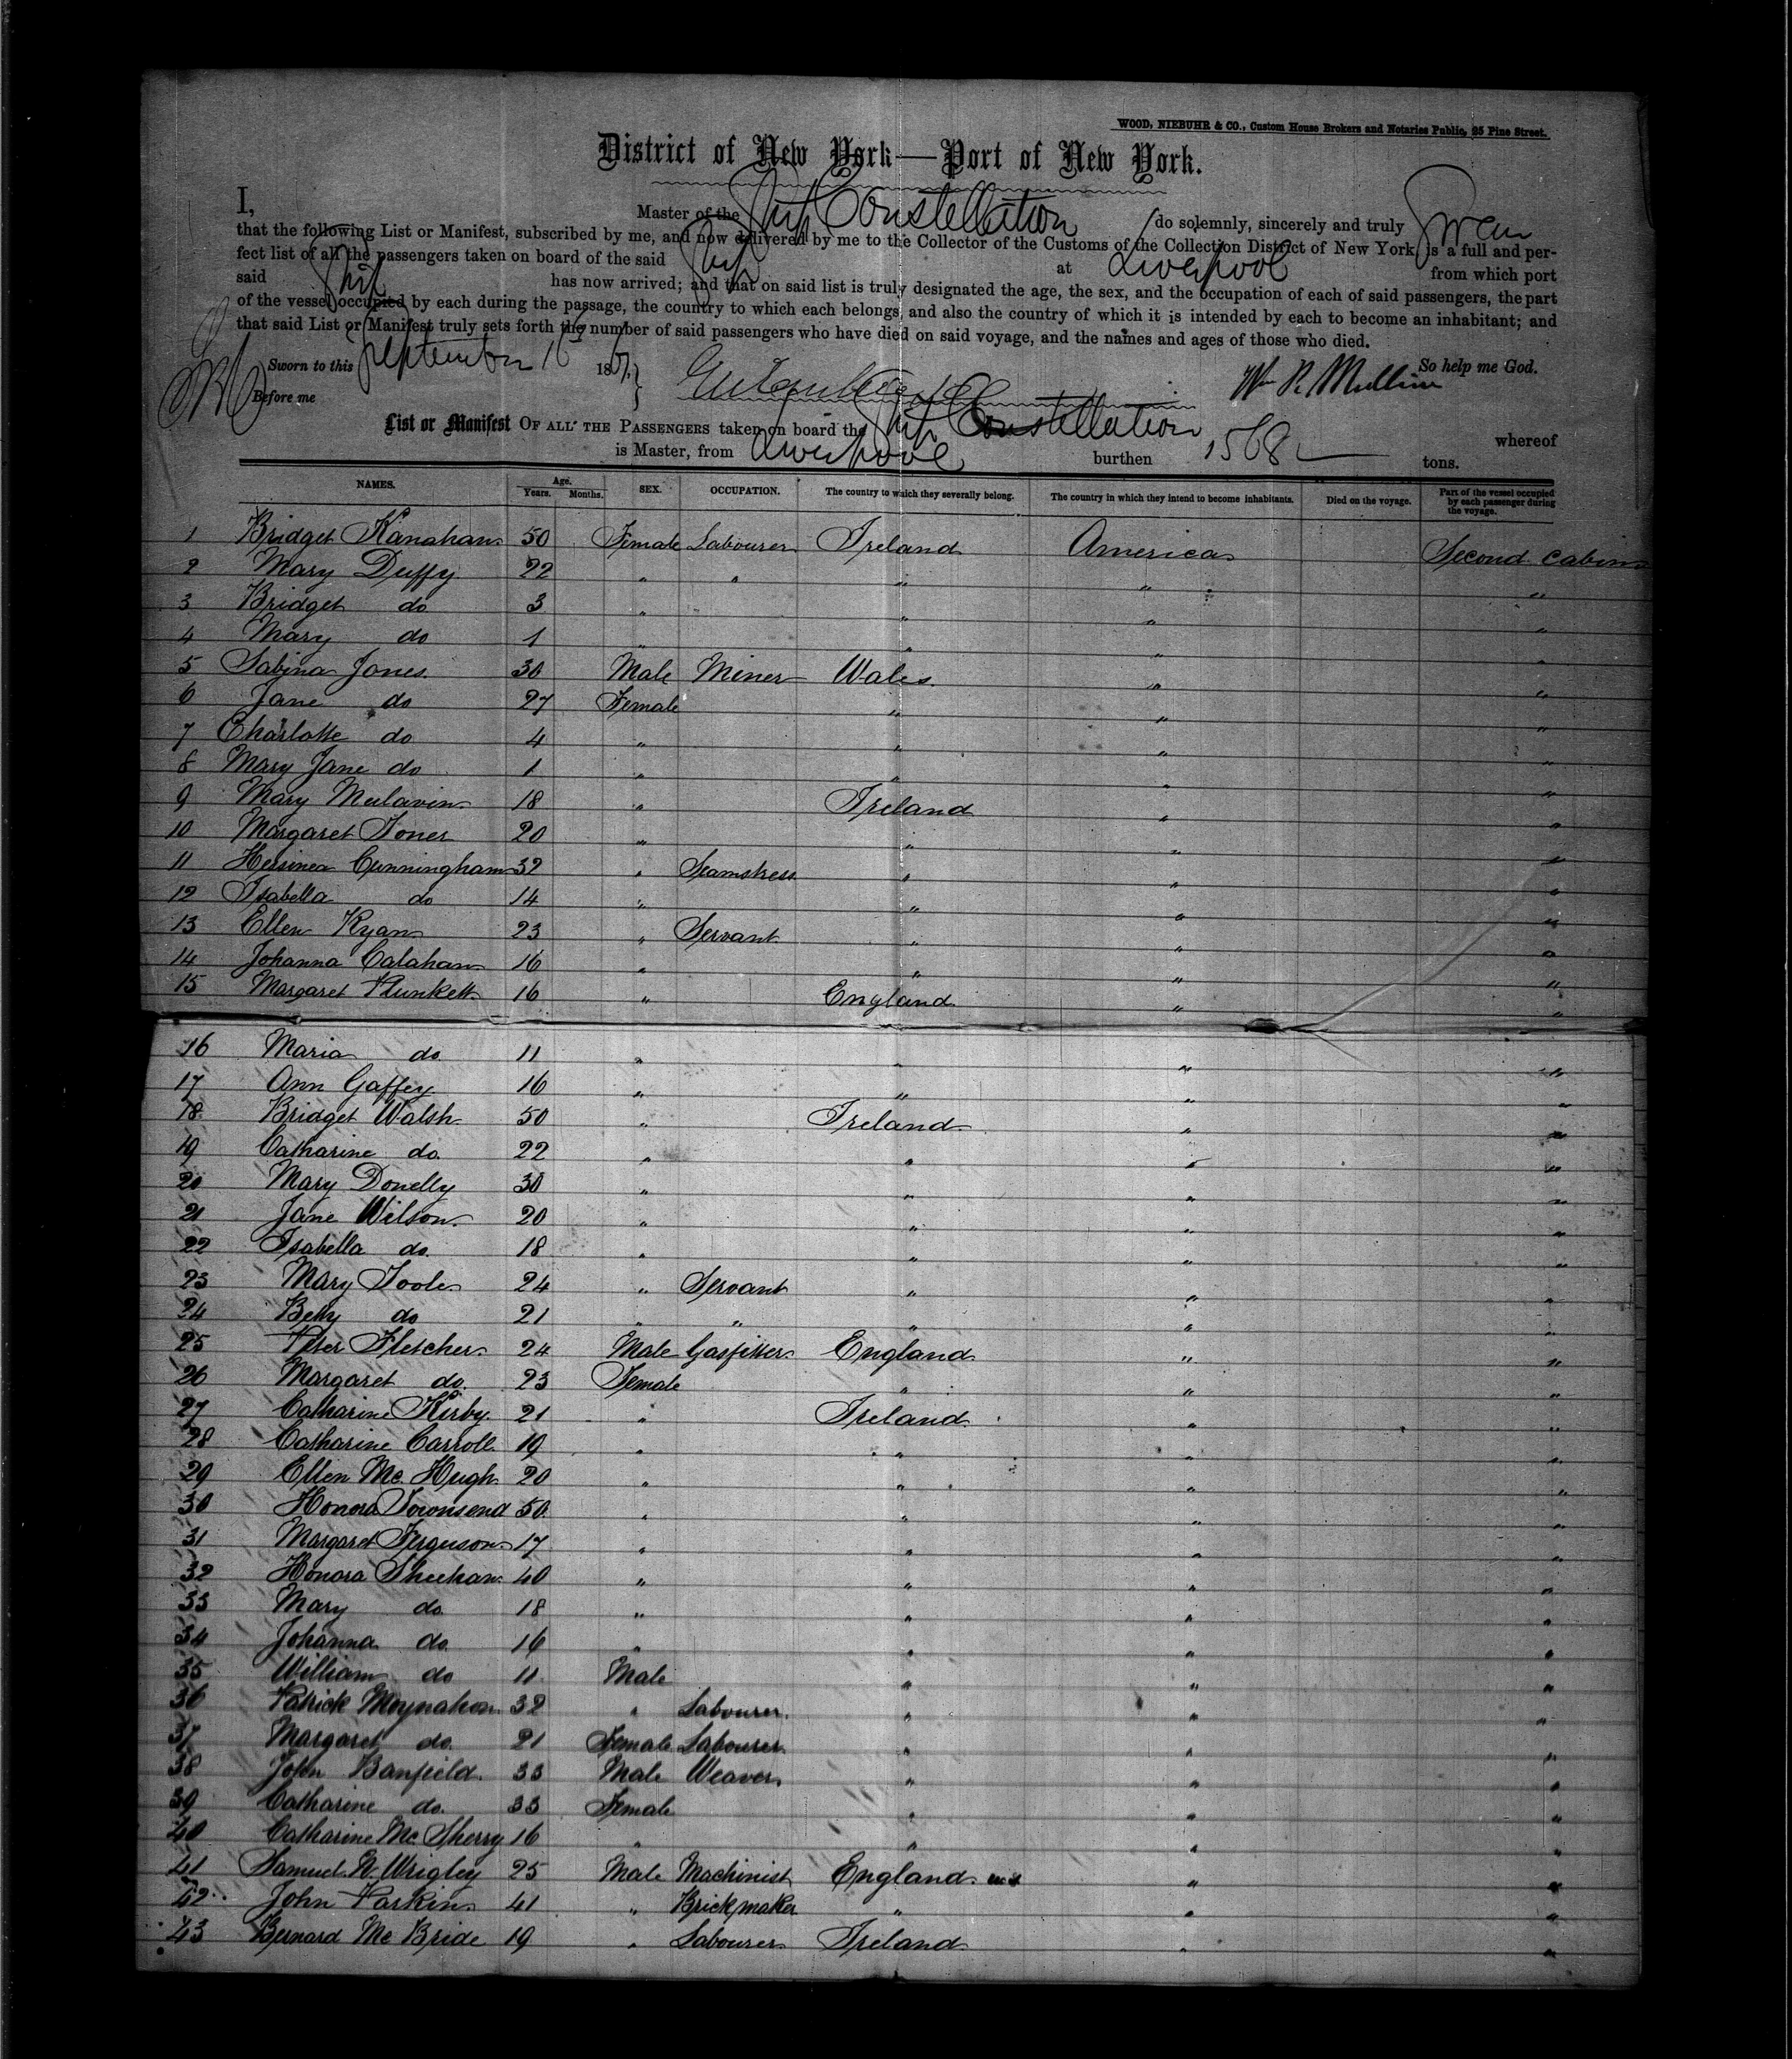 WOOD, NIEBUHR & CO., Custom House Brokers and Notaries Public, 25 Pine Street.
District of New York—Port of New York.
I, Master of the Ship Constellation do solemnly, sincerely and truly Swear
that the following List or Manifest, subscribed by me, and now delivered by me to the Collector of the Customs of the Collection District of New York, is a full and per-
fect list of all the passengers taken on board of the said Ship at Liverpool from which port
said Ship has now arrived; and that on said list is truly designated the age, the sex, and the occupation of each of said passengers, the part
of the vessel occupied by each during the passage, the country to which each belongs, and also the country of which it is intended by each to become an inhabitant; and
that said List or Manifest truly sets forth the number of said passengers who have died on said voyage, and the names and ages of those who died.
Sworn to this September 16 1867. So help me God.
Before me Wm R. Mullin
List or Manifest OF ALL THE PASSENGERS taken on board the Ship Constellation whereof
is Master, from Liverpool burthen 1568 tons.
NAMES. Age. Years. Months. SEX. OCCUPATION. The country to which they severally belong. The country in which they intend to become inhabitants. Died on the voyage. Part of the vessel occupied by each passenger during the voyage.
1 Bridget Kanahan 50 Female Labourer Ireland America Second Cabin
2 Mary Duffy 22 " " " " "
3 Bridget do 3 " " " "
4 Mary do 1 " " " "
5 Sabina Jones 30 Male Miner Wales " "
6 Jane do 27 Female " " "
7 Charlotte do 4 " " " "
8 Mary Jane do 1 " " " "
9 Mary Mulavin 18 " Ireland " "
10 Margaret Toner 20 " " " "
11 Cunningham 32 " Seamstress " " "
12 Isabella do 14 " " " "
13 Ellen Ryan 23 " Servant " " "
14 Johanna Calahan 16 " " " "
15 Margaret Plunkett 16 " England " "
16 Maria do 11 " " " "
17 Ann Gaffey 16 " " " "
18 Bridget Walsh 50 " Ireland " "
19 Catharine do. 22 " " " "
20 Mary Donelly 30 " " " "
21 Jane Wilson 20 " " " "
22 Isabella do. 18 " " " "
23 Mary Toole 24 " Servant " " "
24 Betty do 21 " " " " "
25 Peter Fletcher 24 Male Gasfitter England " "
26 Margaret do. 23 Female " " "
27 Catharine Kirby 21 " Ireland " "
28 Catharine Carroll 19 " " " "
29 Ellen Mc Hugh 20 " " " "
30 Honora Townsend 50 " " " "
31 Margaret Ferguson 17 " " " "
32 Honora Sheehan 40 " " " "
33 Mary do 18 " " " "
34 Johanna do. 16 " " " "
35 William do 11 Male " " "
36 Patrick Moynahan 32 " Labourer " " "
37 Margaret do. 21 Female Labourer " " "
38 John Banfield 33 Male Weaver " " "
39 Catharine do. 33 Female " " "
40 Catharine Mc Sherry 16 " " " "
41 Samuel Wrigley 25 Male Machinist England " "
42 John Parkin 41 " Brickmaker " " "
43 Bernard Mc Bride 19 " Labourer Ireland " "